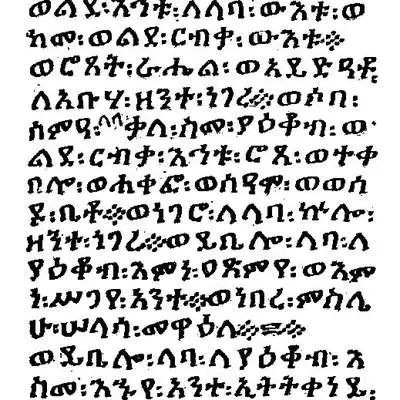 ወልደ፡እኅቱ፡ለላባ፡ውእቱ፡ወ
ከመ፡ወልደ፡ርብቃ፡ውእቱ፨
ወሮጸት፡ራሔል፡ወአይድዓቶ
ለአቡሃ፡ዘንተ፡ነገረ፨ወሶበ፡
ሰምዓ፡ላባ፡ቃለ፡ስመ፡ያዕቆብ፡ወ
ልደ፡ርብቃ፡እኅቱ፡ሮጸ፡ወተቀ
በሎ፡ወሐቀፎ፡ወሰዓሞ፡ወወሰ
ዶ፡ቤቶ፨ወነገሮ፡ለላባ፡ኵሎ፡
ዘንተ፡ነገረ፨ወይቤሎ፡ላባ፡ለ
ያዕቆብ፡እምነ፡ዐጽምየ፡ወእም
ነ፡ሥጋየ፡አንተ፨ወነበረ፡ምስሌ
ሁ፡ሠላሳ፡መዋዕለ፨፨
ወይቤሎ፡ላባ፡ለያዕቆብ፡እ
ስመ፡እኁየ፡አንተ፡ኢትትቀነይ፡